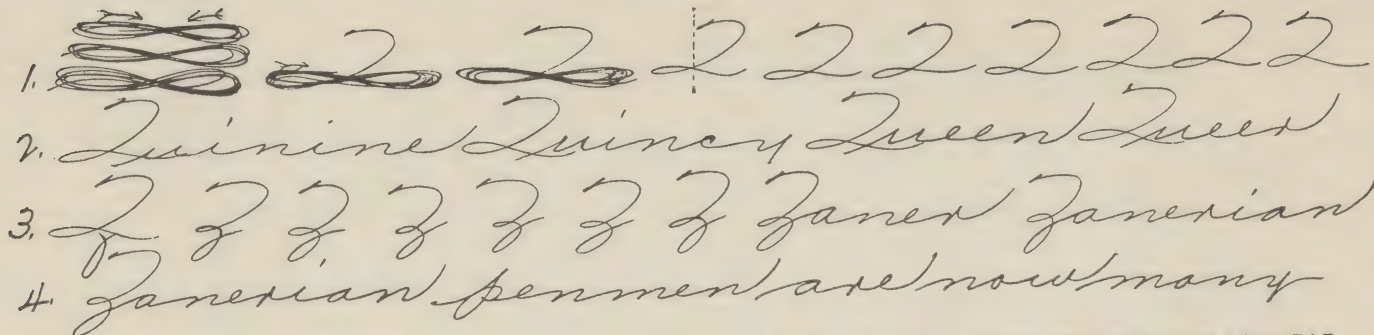 1. Q Q Q Q Q Q Q Q Q
2. Quinine Quincy Queen Queer
3. Z Z Z Z Z Z Z Zaner Zanerian
4. Zanerian penmen are now many